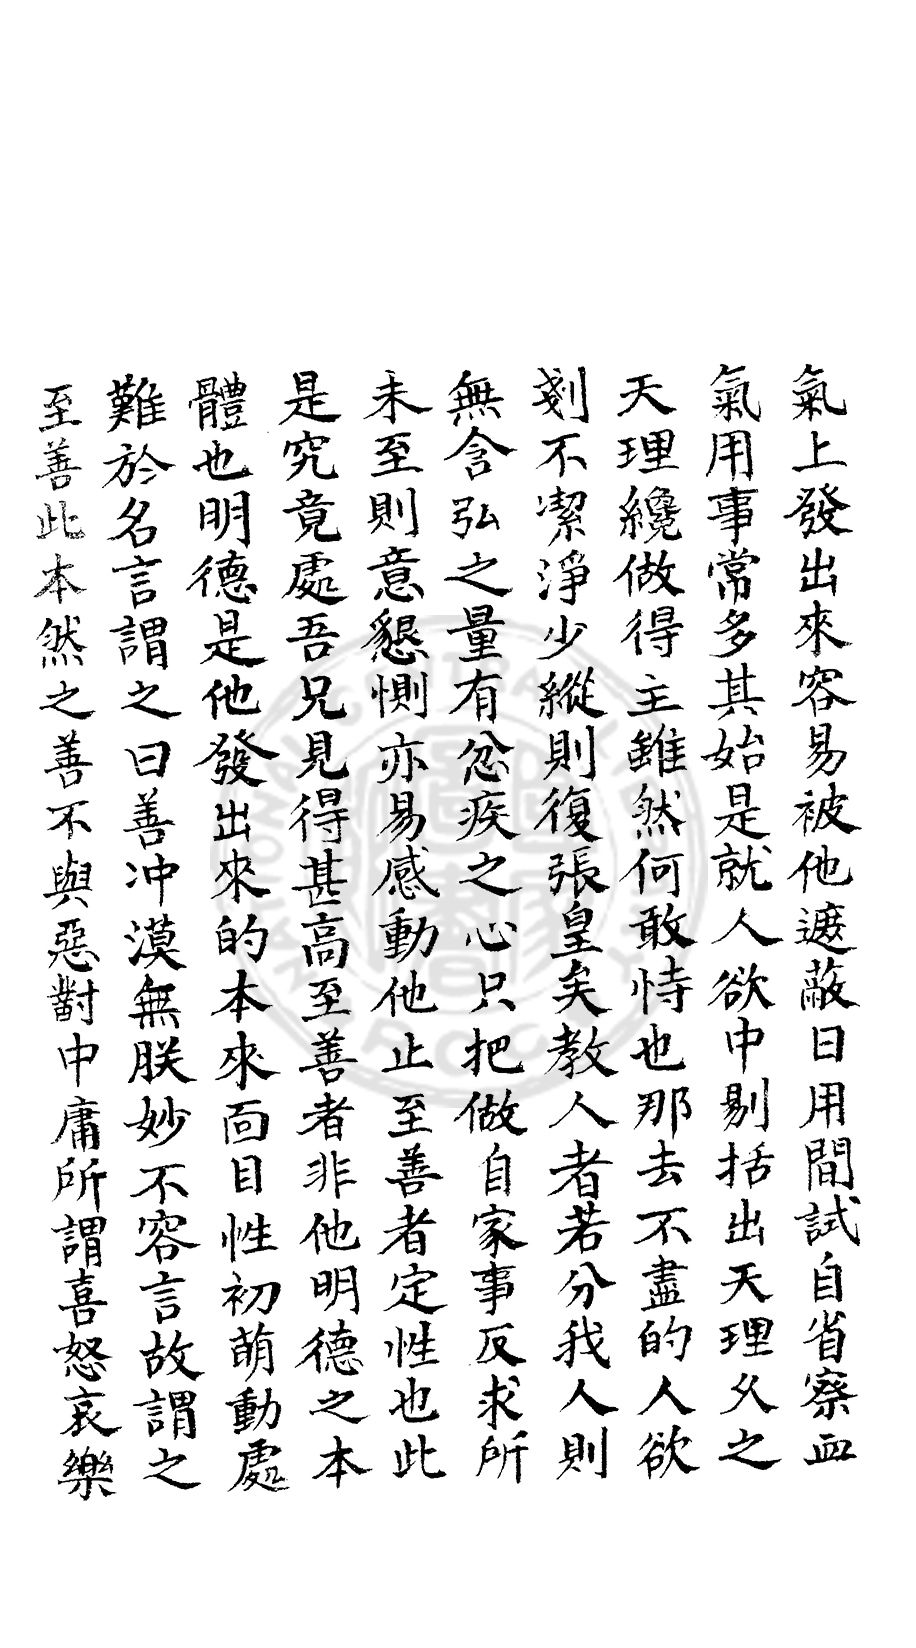 氣上發出來容易被他遮蔽日用間試自省察血
氣用事常多其始是就人欲中剔括出天理久之
天理纔做得主雖然何敢恃也那去不盡的人欲
剗不潔淨少縱則復張皇矣教人者若分我人則
無含弘之量有忿疾之心只把做自家事反求所
未至則意懇惻亦易感動他止至善者定性也此
是究竟處吾兄見得甚高至善者非他明德之本
體也明德是他發出來的本來面目性初萌動處
難於名言謂之曰善冲漠無朕妙不容言故謂之
至善此本然之善不與惡對中庸所謂喜怒哀樂